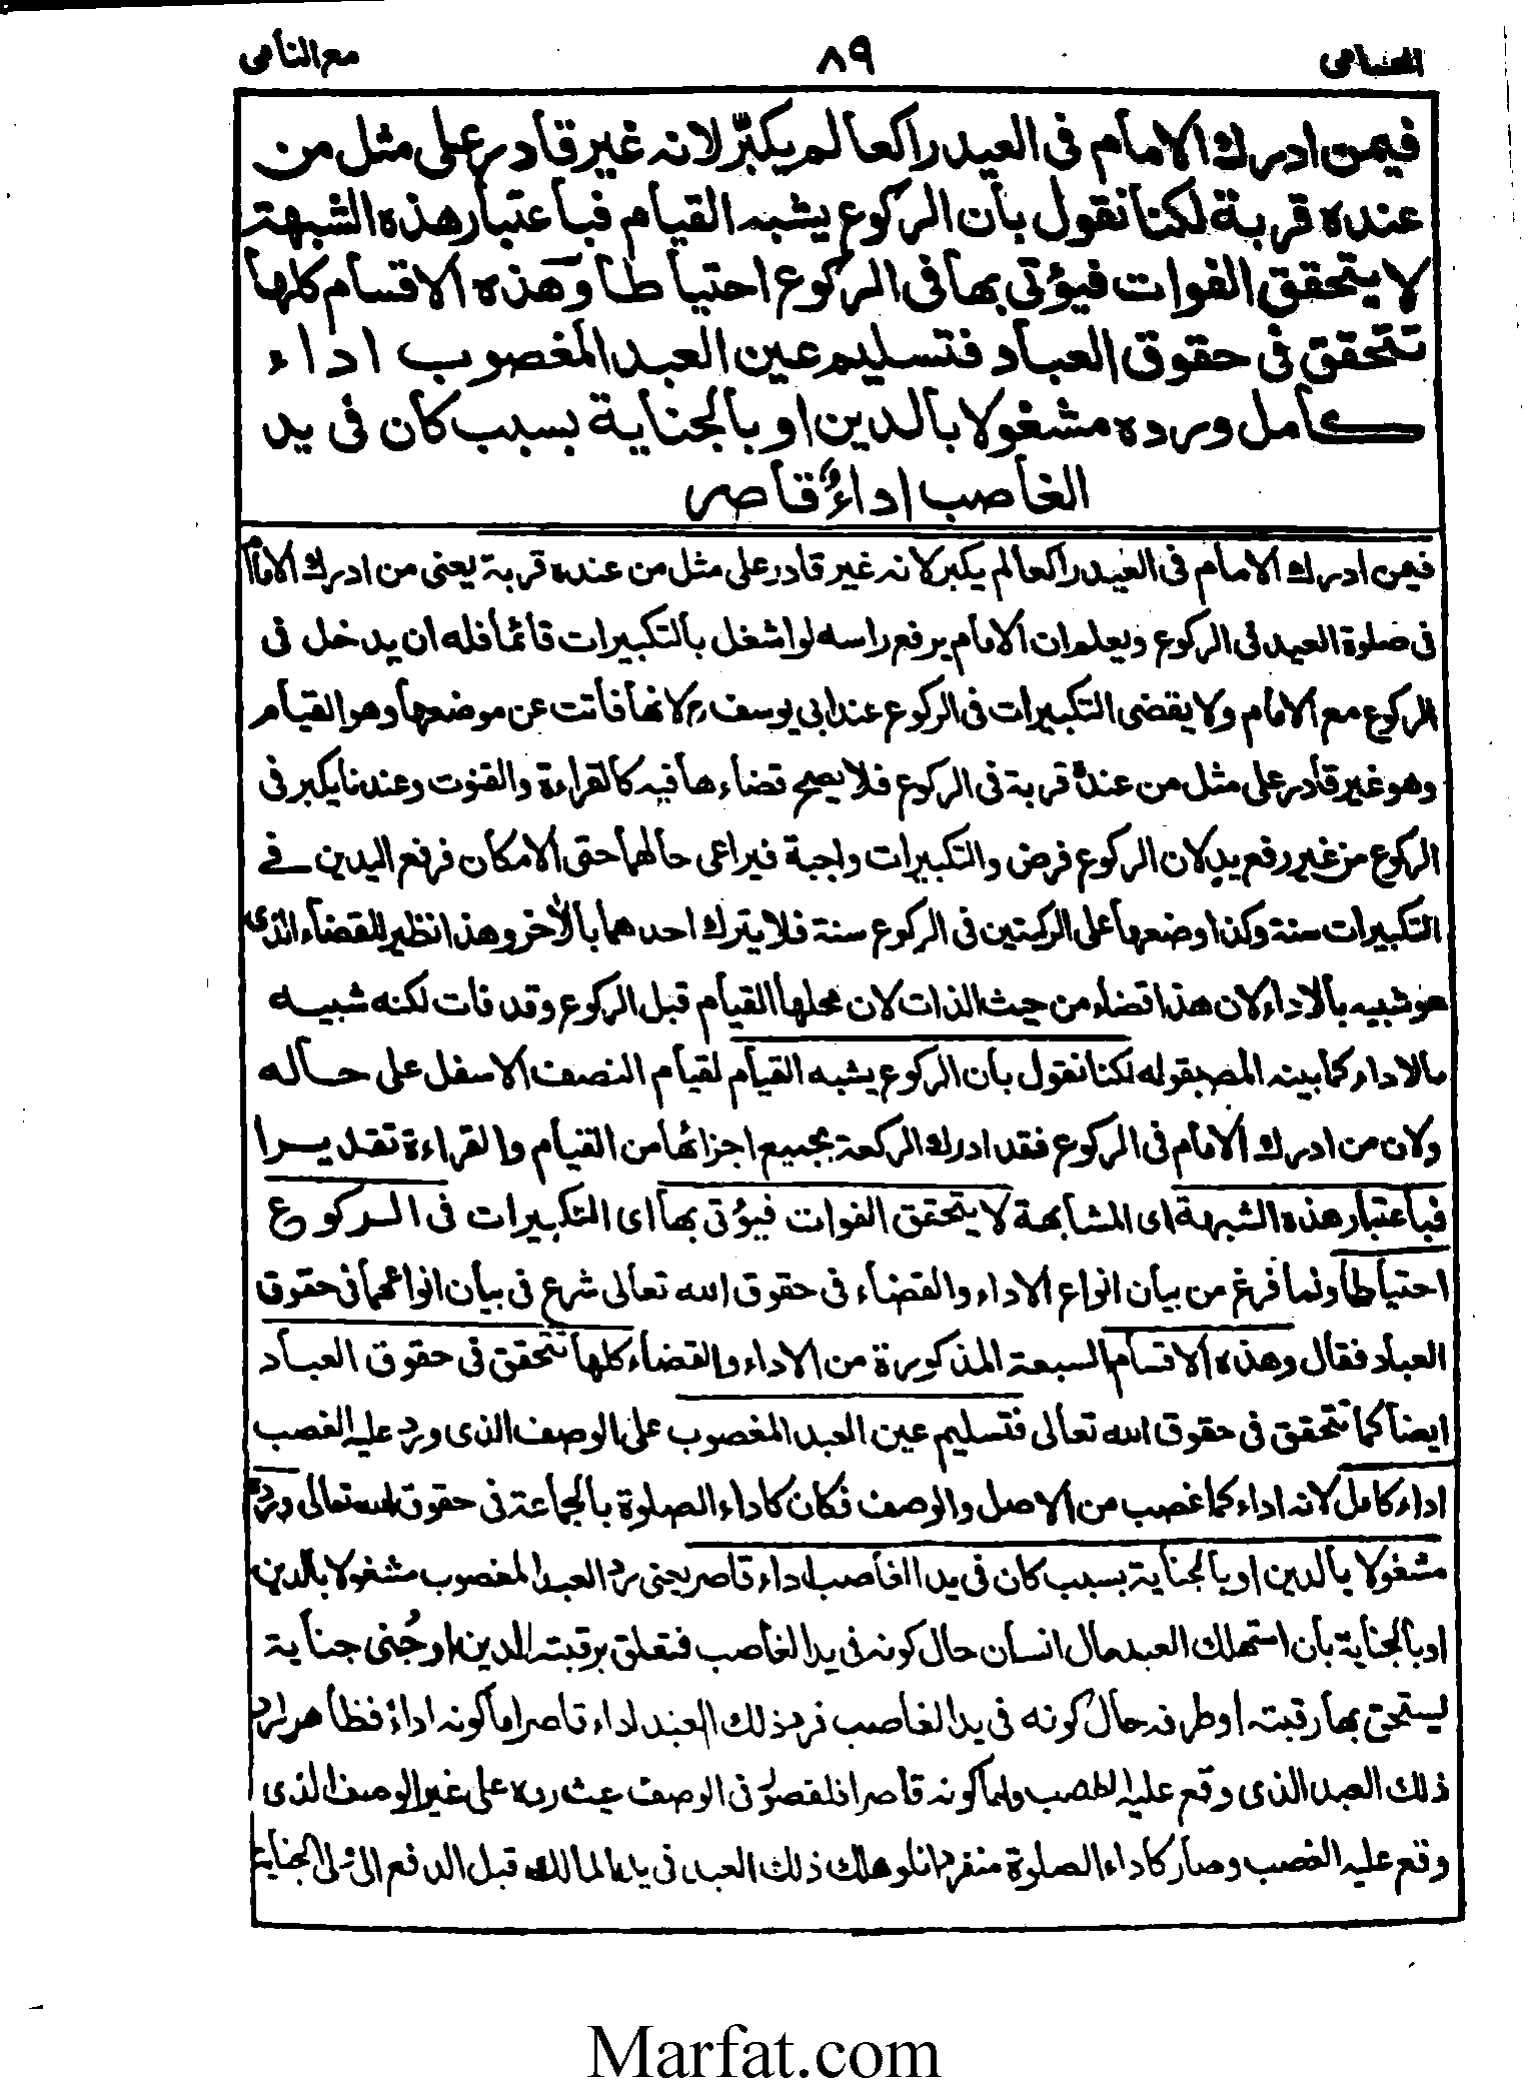 الحسامی ٨٩ مع النامی
فيمن ادرك الامام فى العيد راكعا لم يكبّر لانه غير قادر على مثل من
عنده قربة لكنا نقول بان الركوع يشبه القيام فباعتبار هذه الشبهة
لا يتحقق الفوات فيؤتى بها فى الركوع احتياطا وهذه الاقسام كلها
تتحقق فى حقوق العباد فتسليم عين العبد المغصوب اداء
كامل ورده مشغولا بالدين او بالجناية بسبب كان فى يد
الغاصب اداءٌ قاصر
فيمن ادرك الامام فى العيد راكعا لم يكبر لانه غير قادر على مثل من عنده قربة يعنى من ادرك الامام
فى صلوة العيد فى الركوع ويعلم ان الامام يرفع راسه لو اشغل بالتكبيرات قائما فله ان يدخل فى
الركوع مع الامام ولا يقضى التكبيرات فى الركوع عند ابى يوسف رح لانها فاتت عن موضعها وهو القيام
وهو غير قادر على مثل من عنده قربة فى الركوع فلا يصح قضاءها فيه كالقراءة والقنوت وعندنا يكبر فى
الركوع من غير رفع يد لان الركوع فرض والتكبيرات واجبة فيراعى حالهما حتى الامكان فرفع اليدين فے
التكبيرات سنة وكذا وضعها على الركبتين فى الركوع سنة فلا يترك احدهما بالأخر وهذا نظير للقضاء الذى
هو شبيه بالاداء لان هذا قضاء من حيث الذات لان محلها القيام قبل الركوع وقد فات لكنه شبيه
بالاداء كما بينه المصـ بقوله لكنا نقول بان الركوع يشبه القيام لقيام النصف الاسفل على حاله
ولان من ادرك الامام فى الركوع فقد ادرك الركعة بجميع اجزائها من القيام والقراءة تقديرا
فباعتبار هذه الشبهة اى المشابهة لا يتحقق الفوات فيؤتى بها اى التكبيرات فى الركوع
احتياطا ولما فرغ من بيان انواع الاداء والقضاء فى حقوق الله تعالى شرع فى بيان انواعهما فى حقوق
العباد فقال وهذه الاقسام السبعة المذكورة من الاداء والقضاء كلها تتحقق فى حقوق العباد
ايضا كما تتحقق فى حقوق الله تعالى فتسليم عين العبد المغصوب على الوصف الذى ورد عليه الغصب
اداء كامل لانه اداء كما غصب من الاصل والوصف فكان كاداء الصلوة بالجماعة فى حقوق الله تعالى ورده
مشغولا بالدين او بالجناية بسبب كان فى يد الغاصب اداء قاصر يعنى رد العبد المغصوب مشغولا بالدين
او بالجناية بان استهلك العبد مال انسان حال كونه فى يد الغاصب فتعلق برقبته الدين او جُنى جناية
ليستحق بها رقبته او طرفه حال كونه فى يد الغاصب فرد ذلك العبد اداء قاصر اما كونه اداءً فظاهر لرد
ذلك العبد الذى وقع عليه الغصب واما كونه قاصرا فلقصور فى الوصف حيث رده على غير الوصف الذى
وقع عليه الغصب وصار كاداء الصلوة منفردا فلو هلك ذلك العبد فى يد المالك قبل الدفع الى ولى الجناية
Marfat.com